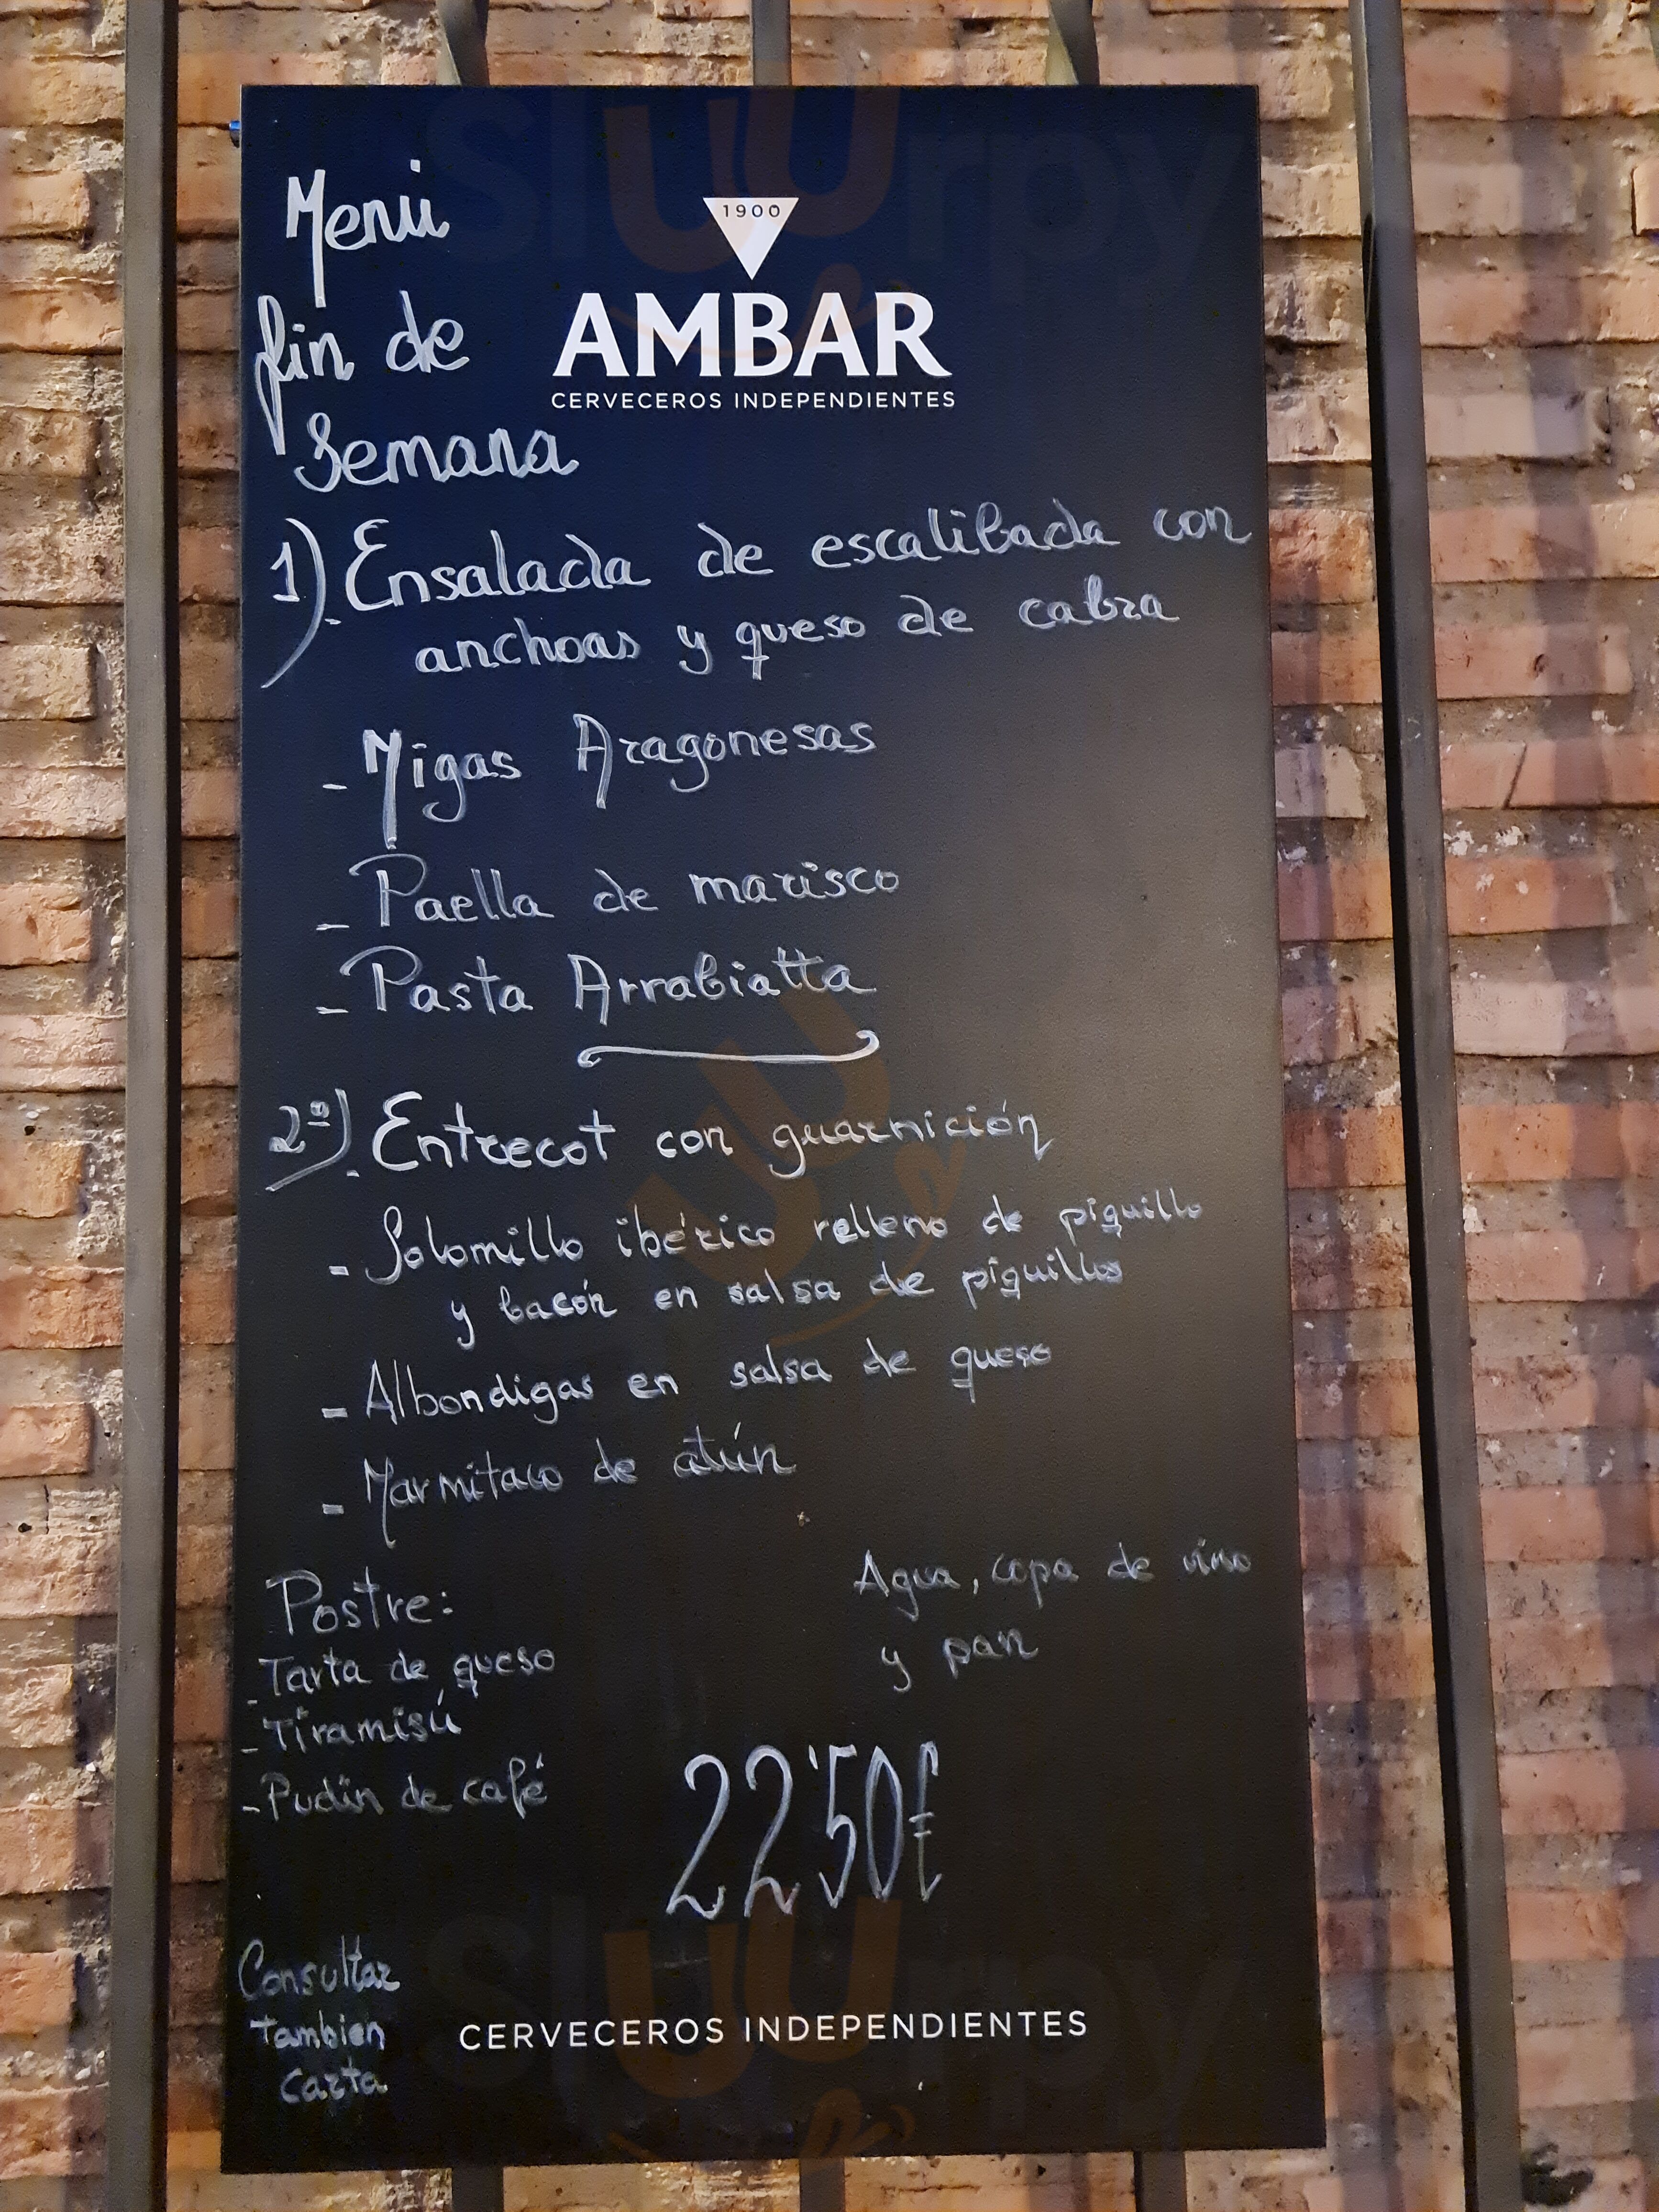 Menú
fin de
Semana
1900
AMBAR
CERVECEROS INDEPENDIENTES
1)- Ensalada de escalibada con
anchoas y queso de cabra
- Migas Aragonesas
- Paella de marisco
- Pasta Arrabiatta
2º)- Entrecot con guarnición
- Solomillo ibérico relleno de piquillo
y bacón en salsa de piquillos
- Albondigas en salsa de queso
- Marmitaco de atún
Postre:
- Tarta de queso
- Tiramisú
- Pudin de café
Agua, copa de vino
y pan
22'50€
Consultar
tambien
carta
CERVECEROS INDEPENDIENTES
sluurpy
sluurpy